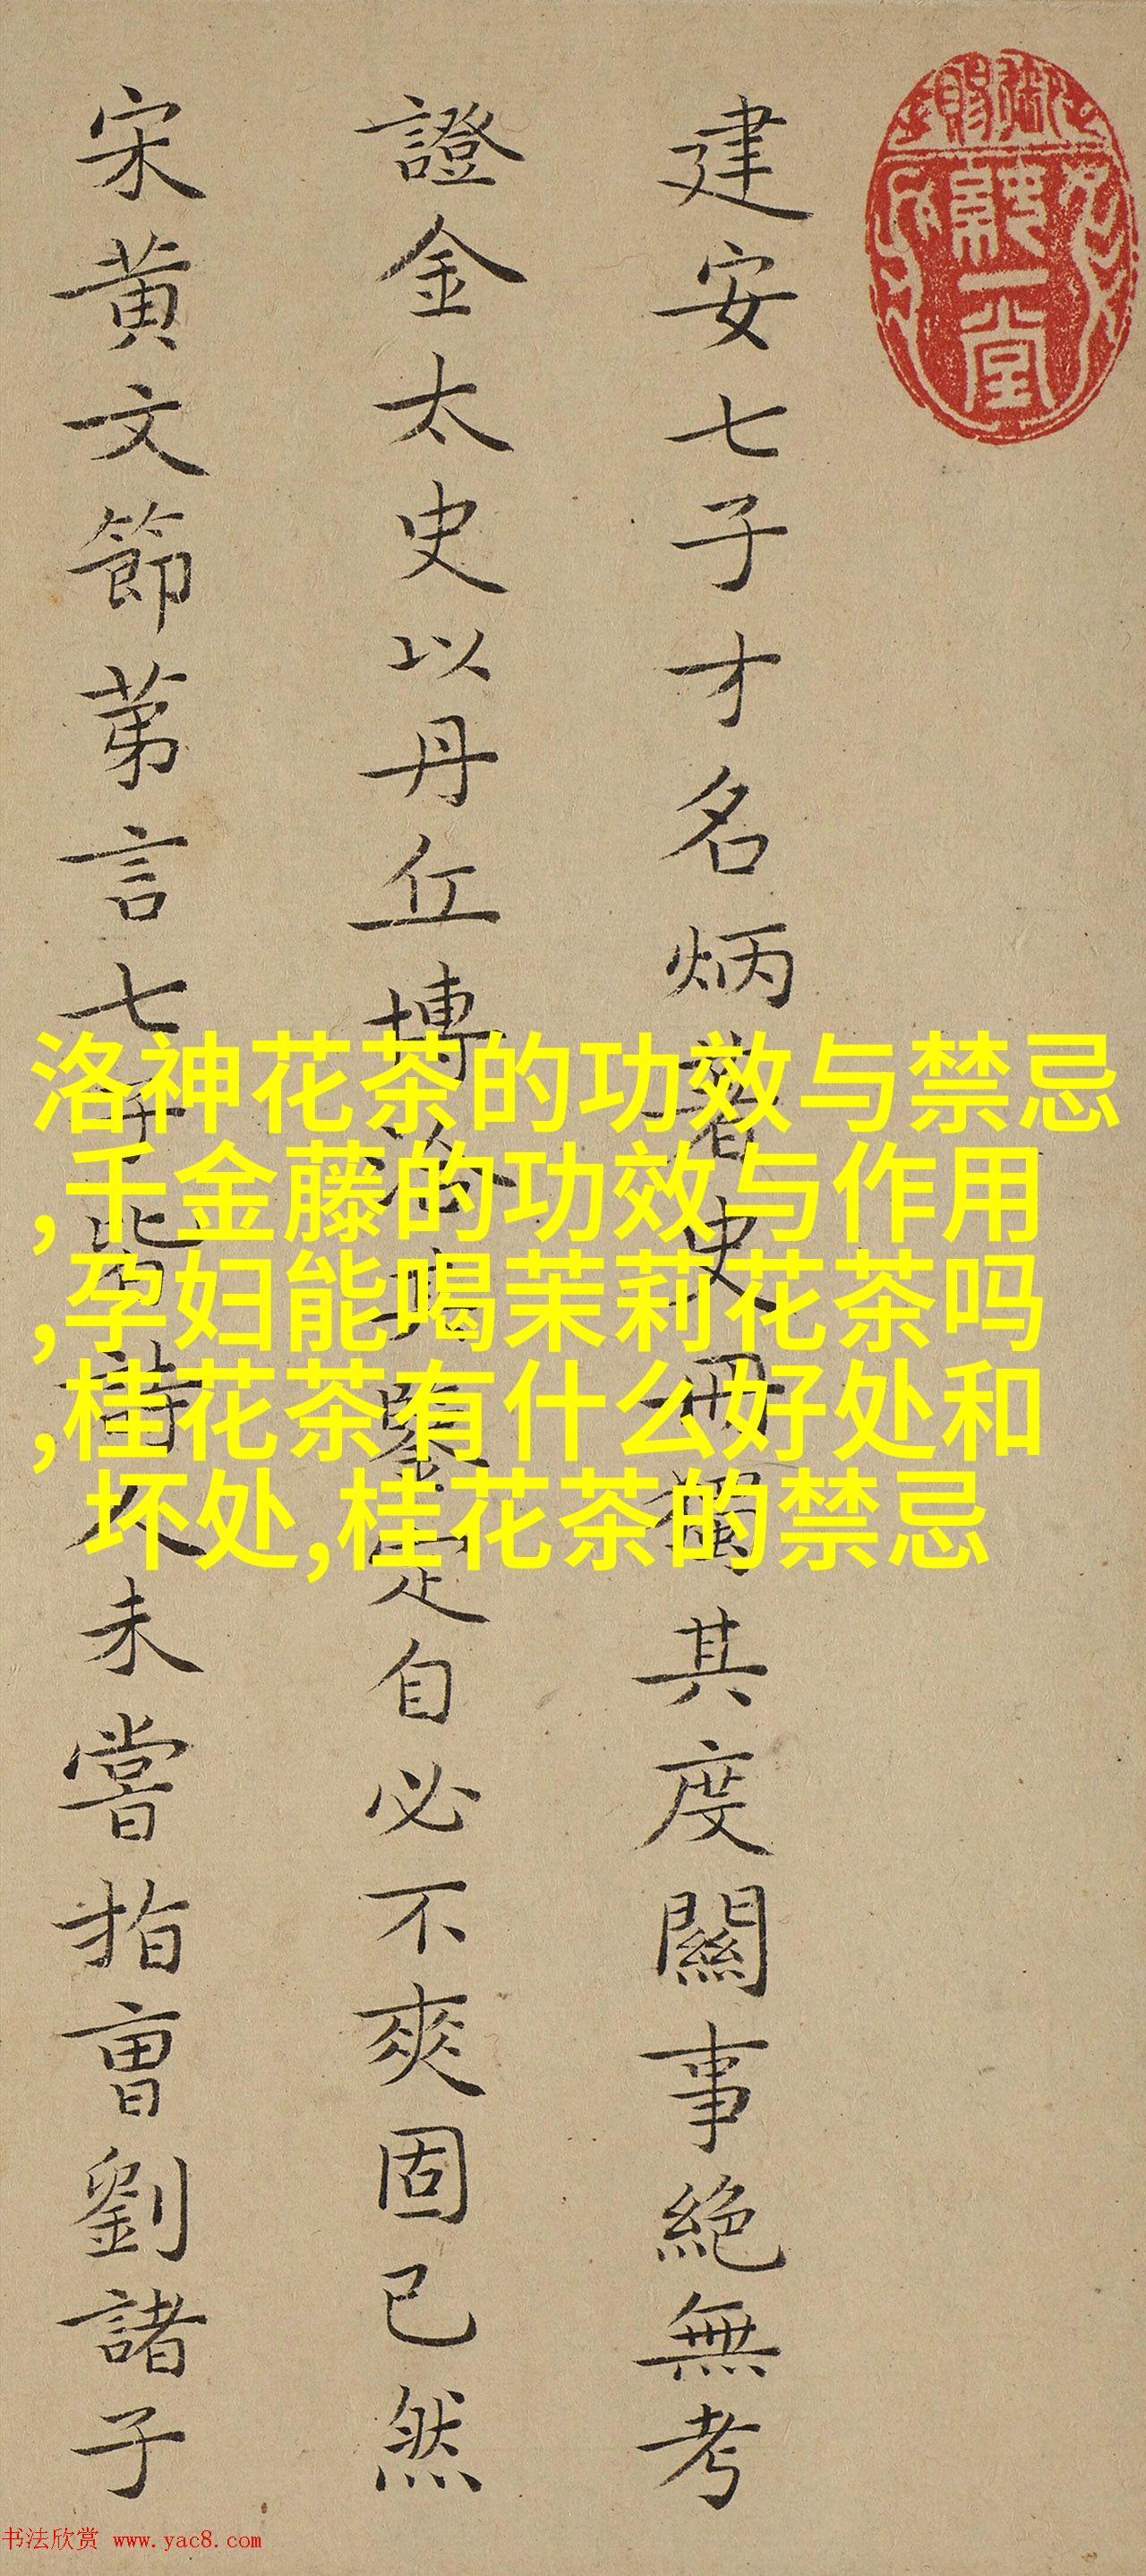 建安七子才名炳著史冊獨其度關事絕無考
證金太史以丹丘博洽其鑒定自必不爽固已然
宋黃文節苐言七子皆詩人未嘗指曹劉諸子
洛神花茶的功效与禁忌
,千金藤的功效与作用
,孕妇能喝茉莉花茶吗
,桂花茶有什么好处和
坏处,桂花茶的禁忌
书法欣赏 www.yac8.com